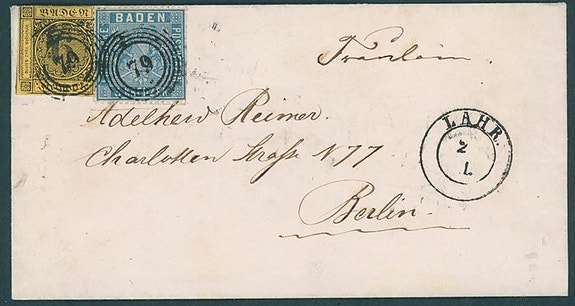 BADEN
BADEN
79
79
Fräulein
Adelheid Reimer.
Charlotten Straße N 77
Berlin.
LAHR.
2
1.